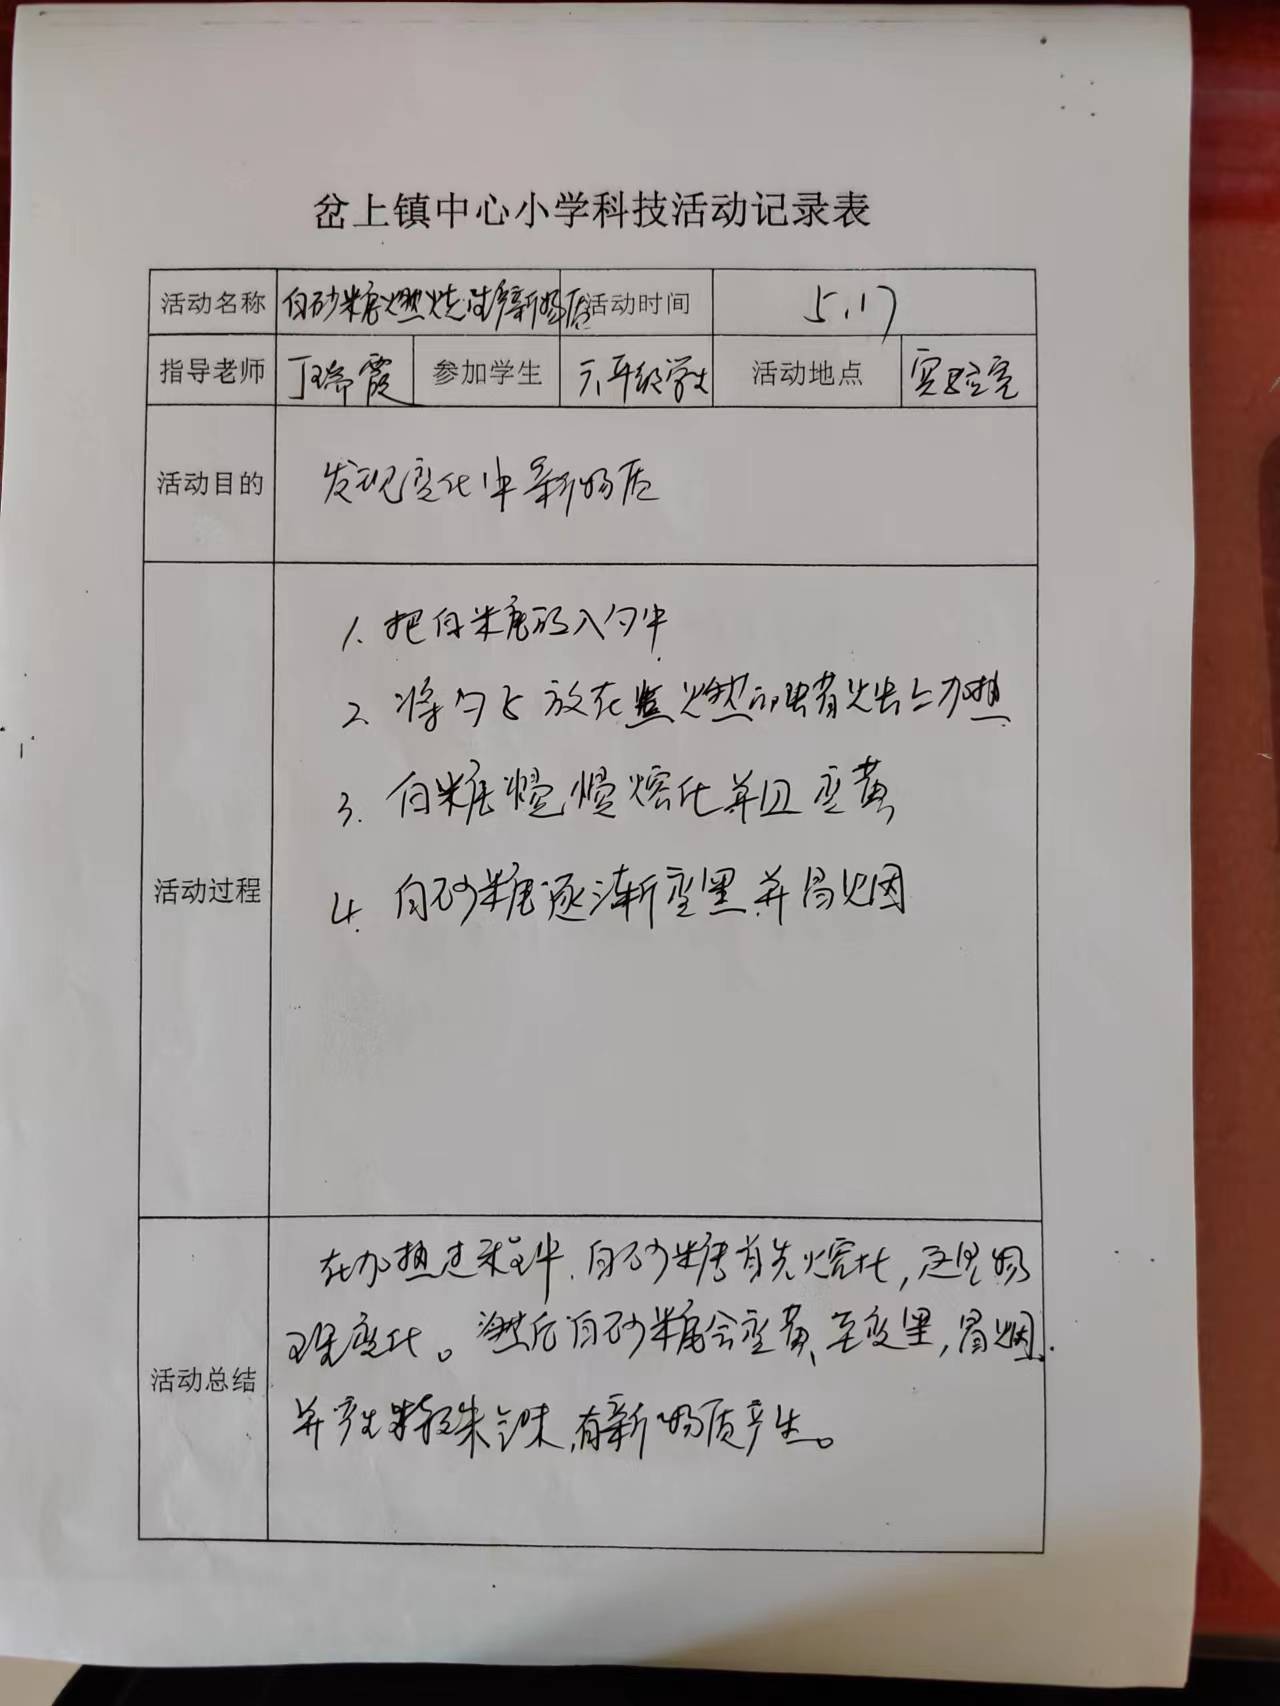 岔上镇中心小学科技活动记录表
活动名称 白砂糖燃烧 新物质 活动时间 5.17
指导老师 丁瑞霞 参加学生 六年级学生 活动地点 实验室
活动目的 发现变化中新物质
活动过程
1. 把白糖放入勺中
2. 将勺 放在 燃的蜡烛上加热
3. 白糖慢慢熔化并且变黄
4. 白砂糖逐渐变黑并冒烟
活动总结
在加热过程中,白砂糖首先熔化,这是物
理变化。然后白砂糖会变黄、至变黑,冒烟.
并产生特殊气味,有新物质产生。